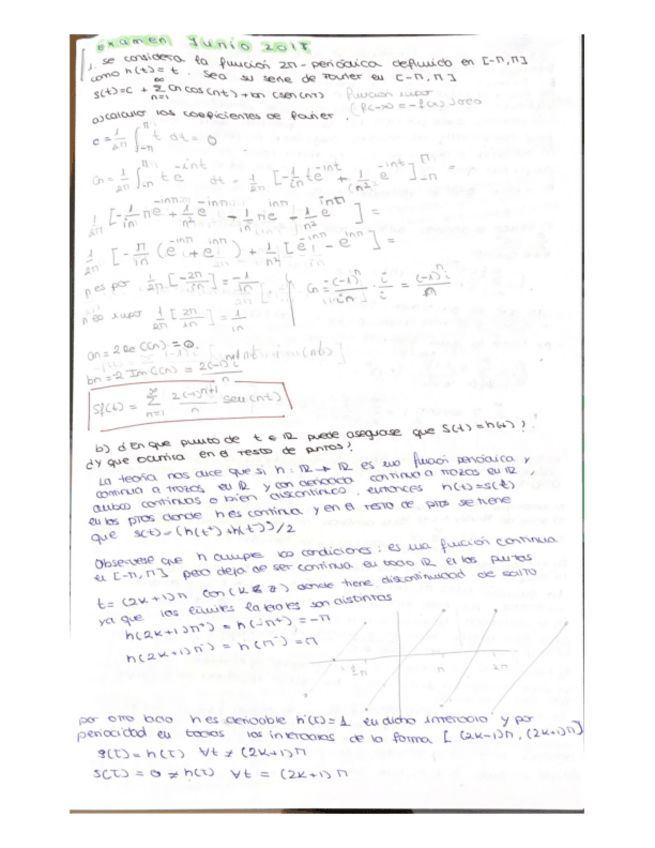 examen Junio 2018
1. se considera la función 2π-periódica definida en [-π,π]
como h(t)=t. Sea su serie de Fourier en [-π,π]
S(t)=c + ∑_{n=1}^{∞} an cos(nt) + bn sen(nt) función impar
(f(-x)=-f(x))
a) calcular los coeficientes de Fourier.
c = 1/2π ∫_{-π}^{π} t dt = 0
Cn = 1/2π ∫_{-π}^{π} t e^{-int} dt = 1/2π [-1/in t e^{-int} + 1/n² e^{-int}]_{-π}^{π} =
1/2π [-1/in π e^{-inπ} + 1/n² e^{-inπ} - 1/in π e^{inπ} - 1/n² e^{inπ}] =
1/2π [-π/in (e^{-inπ} + e^{inπ}) + 1/n² [e^{-inπ} - e^{inπ}] =
n es par 1/2π [-2π/in] = -1/in
Cn = -(-1)^n/in · i/i = (-1)^n i/n
n es impar 1/2π [2π/in] = 1/in
an = 2Re(Cn) = 0.
bn = -2 Im(Cn) =
Sf(t) = ∑_{n=1}^{∞} 2(-1)^{n+1}/n sen(nt)
b) ¿En que puntos de t ∈ IR puede asegurarse que S(t)=h(t)?
¿Y que ocurrira en el resto de puntos?
La teoría nos dice que si h: IR → IR es una función periódica y
continua a trozos en IR y con derivada continua a trozos en IR,
ambas continuas o bien discontinuas. entonces h(t)=S(t)
en los ptos donde h es continua y en el resto de ptos se tiene
que S(t)=(h(t⁺)+h(t⁻))/2
Observese que h cumple las condiciones: es una función continua
en [-π,π] pero deja de ser continua en todo IR en los puntos
t=(2k+1)π con (k ∈ Z) donde tiene discontinuidad de salto
ya que los límites laterales son distintos
h(2k+1)π⁺) = h(-π⁺) = -π
h(2k+1)π⁻) = h(π⁻) = π
π 2π
por otro lado h es derivable h'(t)=1 en dicho intervalo y por
periocidad en todos los intervalos de la forma [(2k-1)π, (2k+1)π]
S(t) = h(t) ∀t ≠ (2k+1)π
S(t) = 0 ≠ h(t) ∀t = (2k+1)π